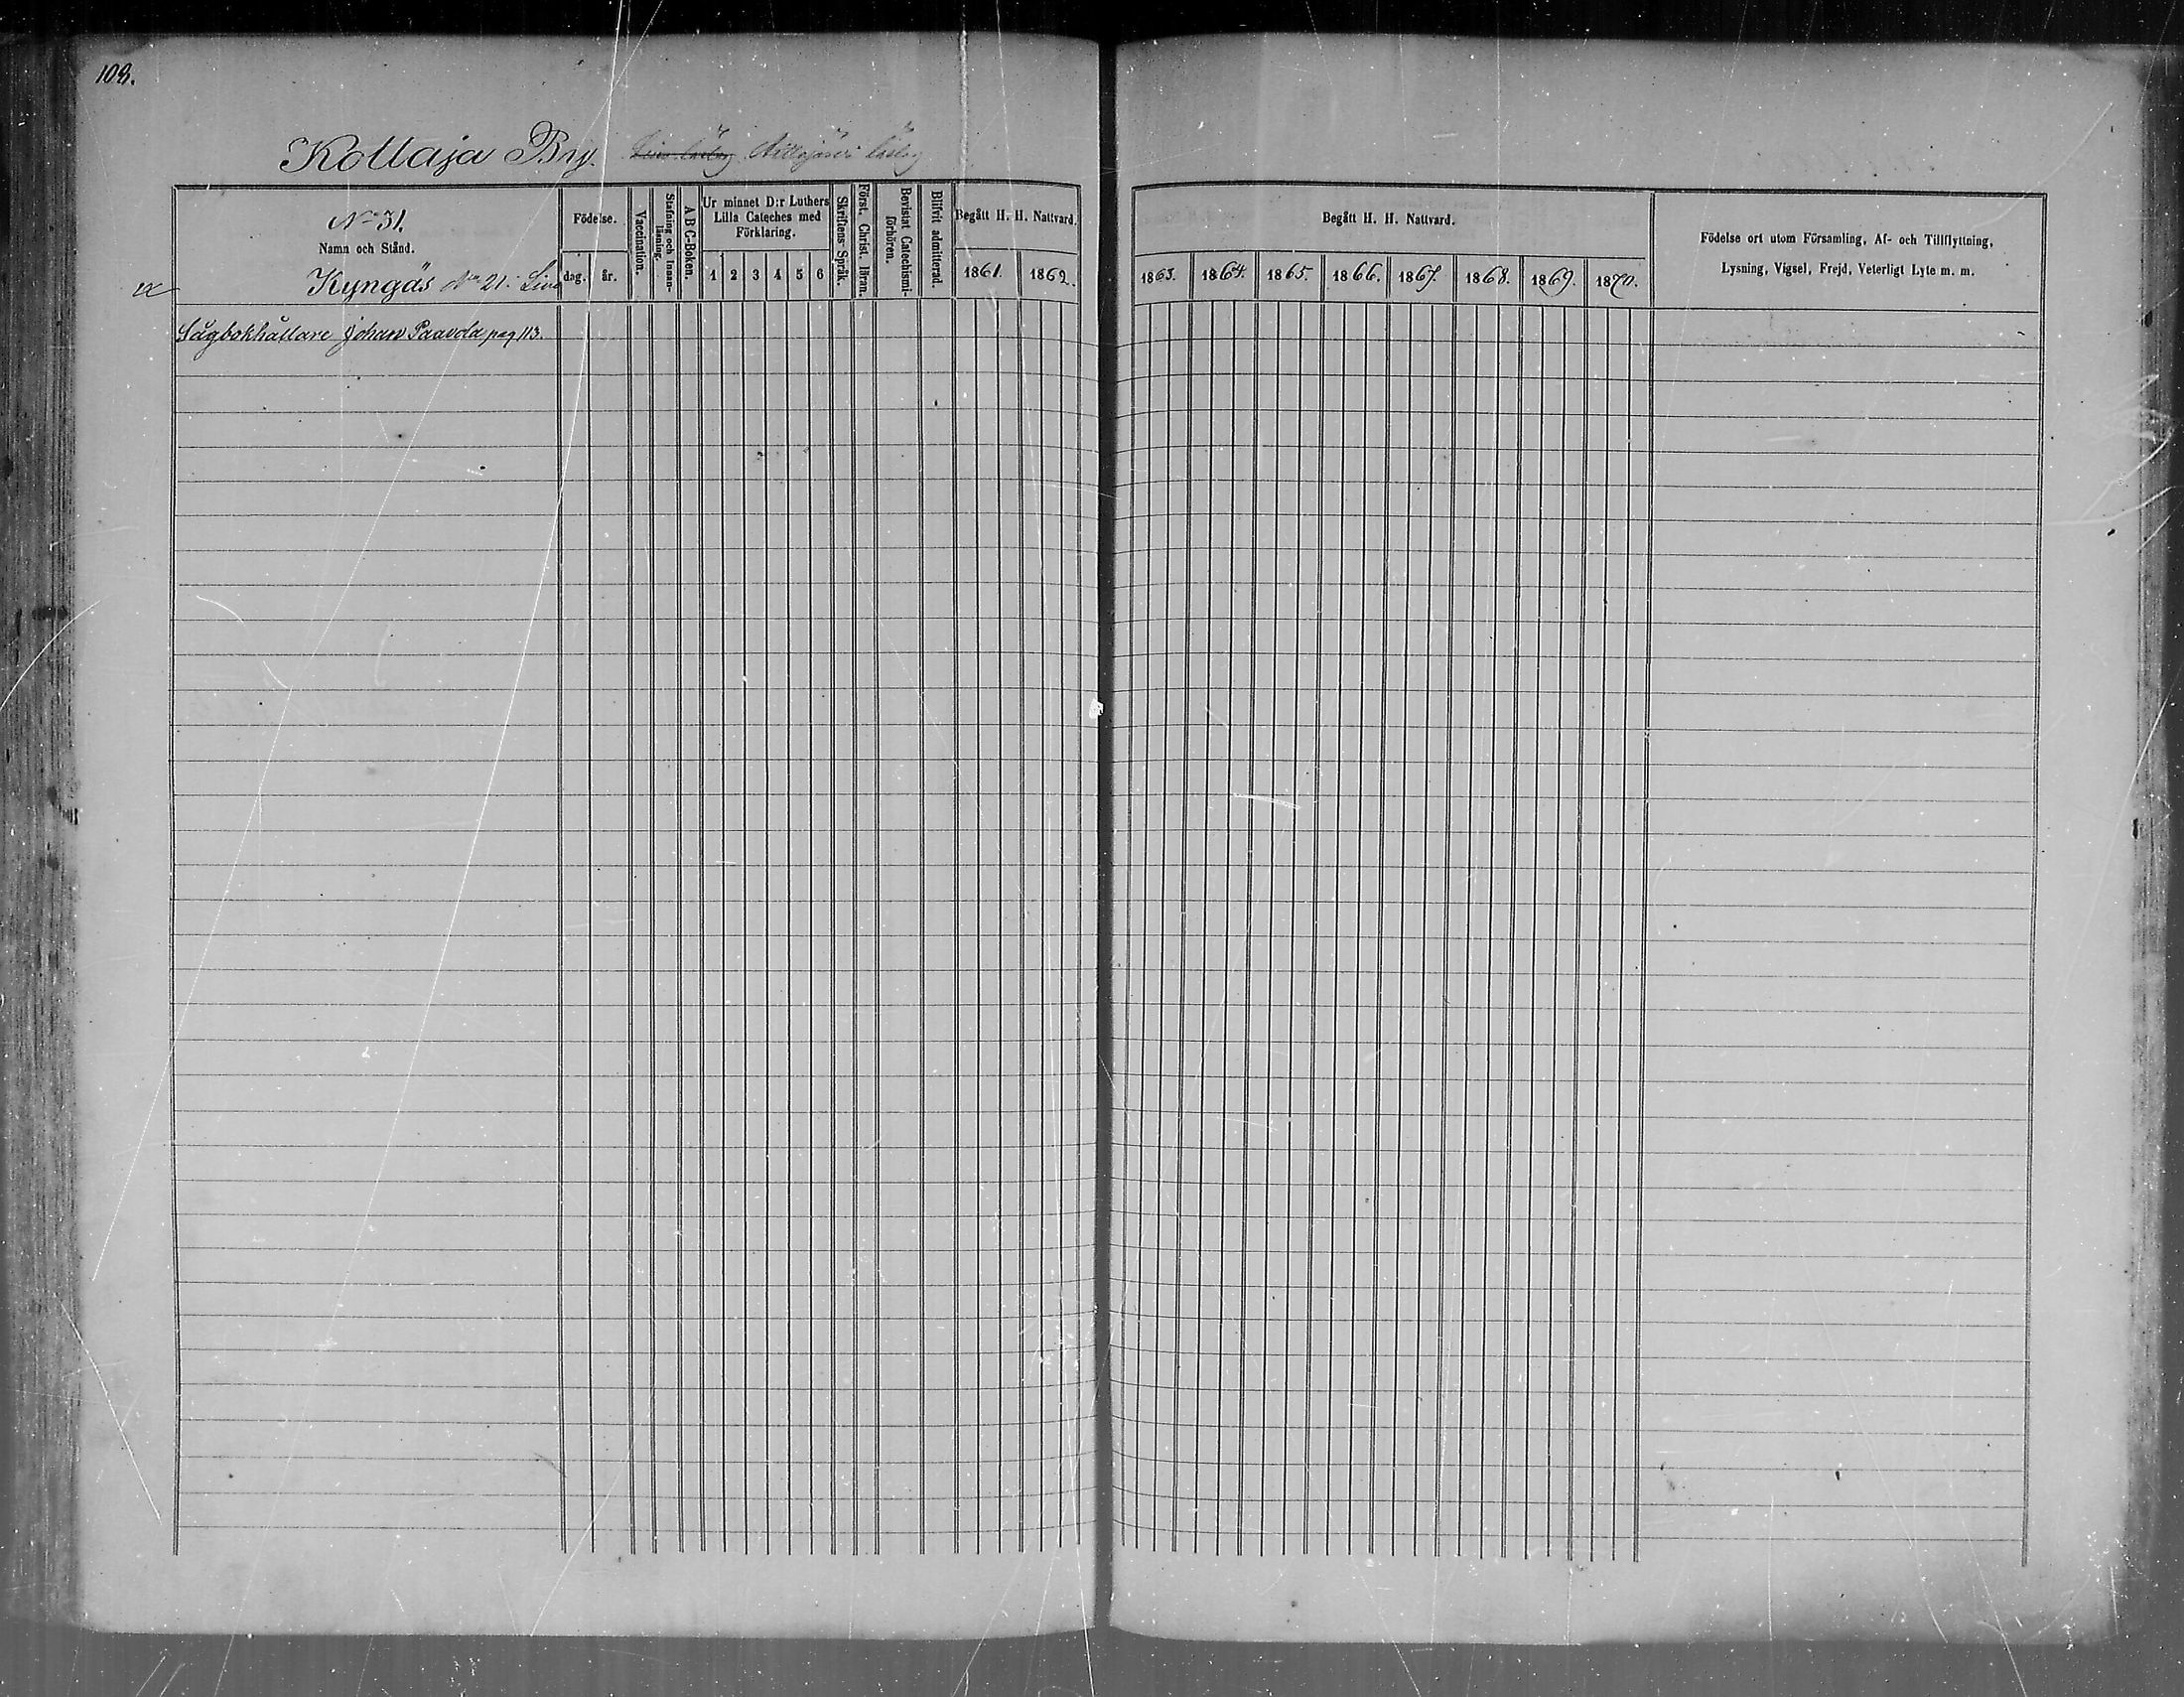 108.
Kollaja By. ~~Livo läslag~~ Aittojärvi läslag
No 31.
Namn och Stånd.
Kyngäs No 21. Livo
Födelse.
dag. år.
Vaccination.
Stafning och Innanläsning.
A B C-Boken.
Ur minnet D:r Luthers
Lilla Cateches med
Förklaring.
1 2 3 4 5 6
Skriftens-Språk.
Först. Christ. läran.
Bevistat Catechismi-
förhören.
Blifvit admitterad.
Begått H. H. Nattvard.
1861. 1862.
Begått H. H. Nattvard.
1863. 1864. 1865. 1866. 1867. 1868. 1869. 1870.
Födelse ort utom Församling, Af- och Tillflyttning,
Lysning, Vigsel, Frejd, Veterligt Lyte m. m.
Sågbokhållare Johan Paavola pag 113.